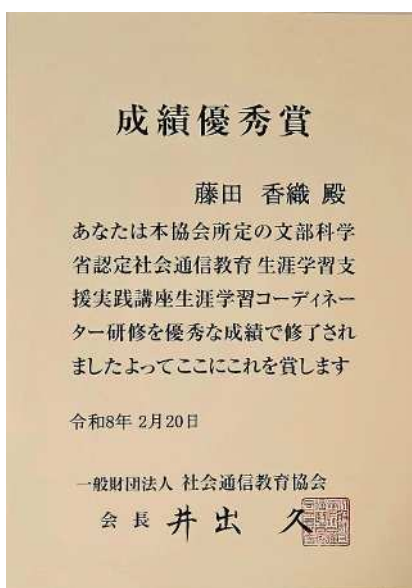 成績優秀賞
藤田 香織 殿
あなたは本協会所定の文部科学
省認定社会通信教育 生涯学習支
援実践講座生涯学習コーディネー
ター研修を優秀な成績で修了され
ましたよってここにこれを賞します
令和8年 2月20日
一般財団法人 社会通信教育協会
会 長 井出 久